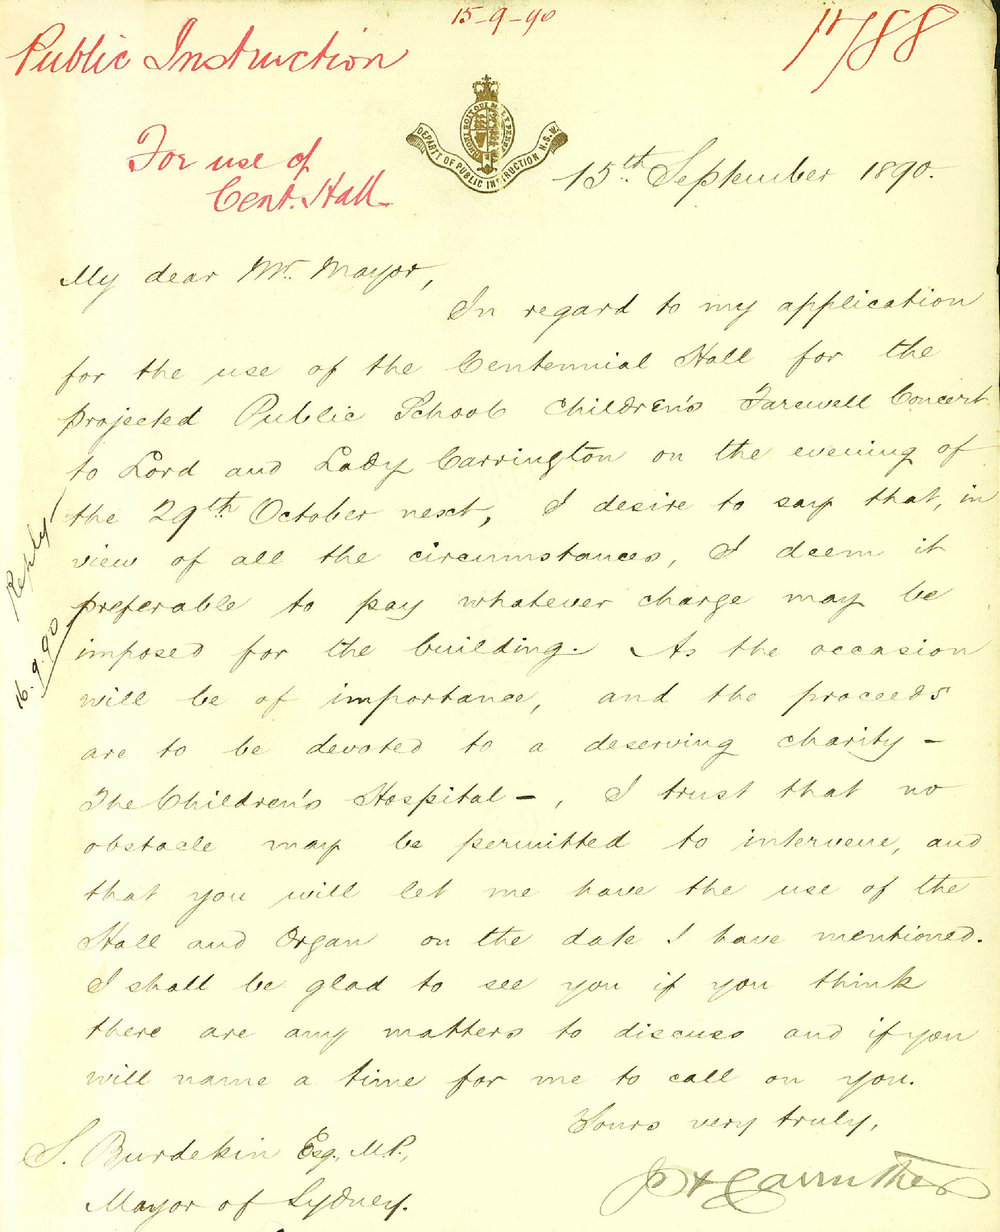 15-9-90
Public Instruction
1788
For use of
Cent. Hall
DEPART. OF PUBLIC INSTRUCTION N.S.W.
15th September 1890.
My dear Mr. Mayor,
In regard to my application
for the use of the Centennial Hall for the
projected Public School Children's Farewell Concert
to Lord and Lady Carrington on the evening of
the 29th October next, I desire to say that, in
view of all the circumstances, I deem it
preferable to pay whatever charge may be
imposed for the building. As the occasion
will be of importance, and the proceeds
are to be devoted to a deserving charity –
The Children's Hospital – , I trust that no
obstacle may be permitted to intervene, and
that you will let me have the use of the
Hall and Organ on the date I have mentioned.
I shall be glad to see you if you think
there are any matters to discuss and if you
will name a time for me to call on you.
Yours very truly,
J H Carruthers
S. Burdekin Esq., M.P.,
Mayor of Sydney.
Reply
16.9.90